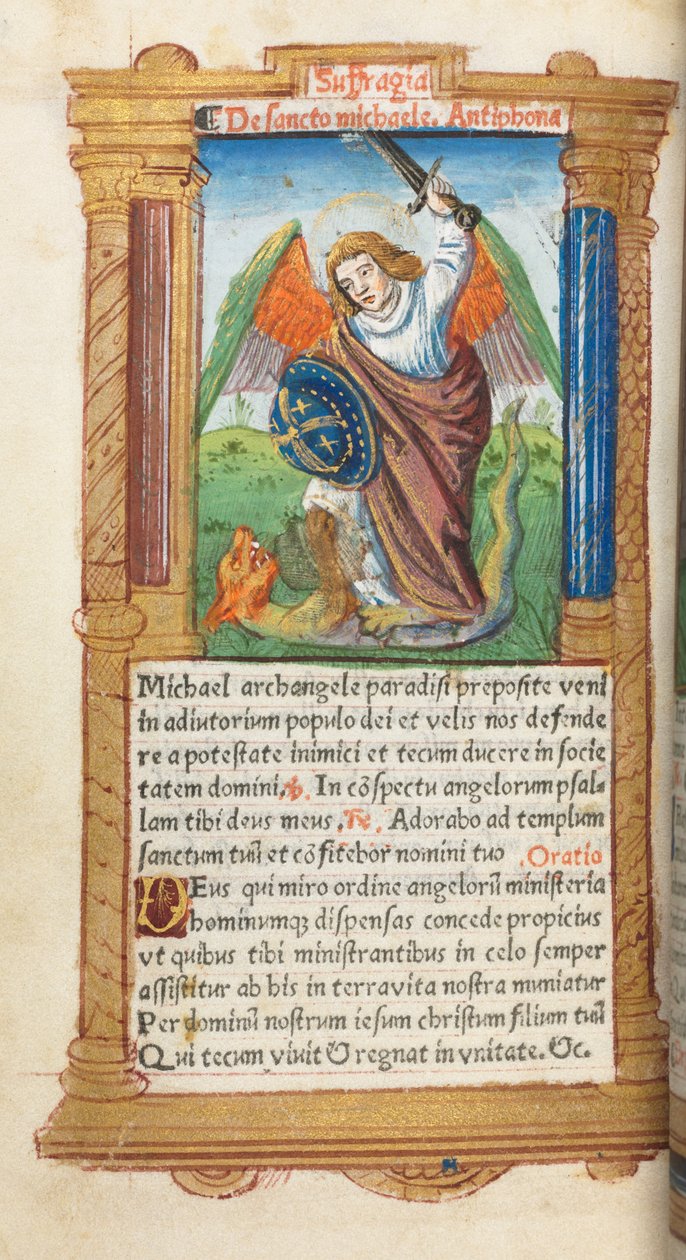 Suffragia
¶ De sancto michaele. Antiphona
Michael archangele paradisi preposite veni
in adiutorium populo dei et velis nos defende
re a potestate inimici et tecum ducere in socie
tatem domini. ℣. In cōspectu angelorum psal-
lam tibi deus meus. ℟. Adorabo ad templum
sanctum tuū et cōfitebor nomini tuo . Oratio
DEus qui miro ordine angelorū ministeria
hominumqꝫ dispensas concede propicius
vt quibus tibi ministrantibus in celo semper
assistitur ab his in terra vita nostra muniatur
Per dominū nostrum iesum christum filium tuū
Qui tecum viuit & regnat in vnitate. &c.